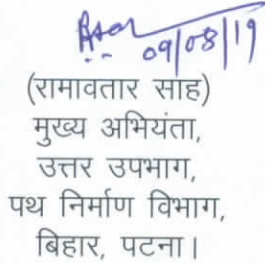 09/08/19
(रामावतार साह)
मुख्य अभियंता,
उत्तर उपभाग,
पथ निर्माण विभाग,
बिहार, पटना।